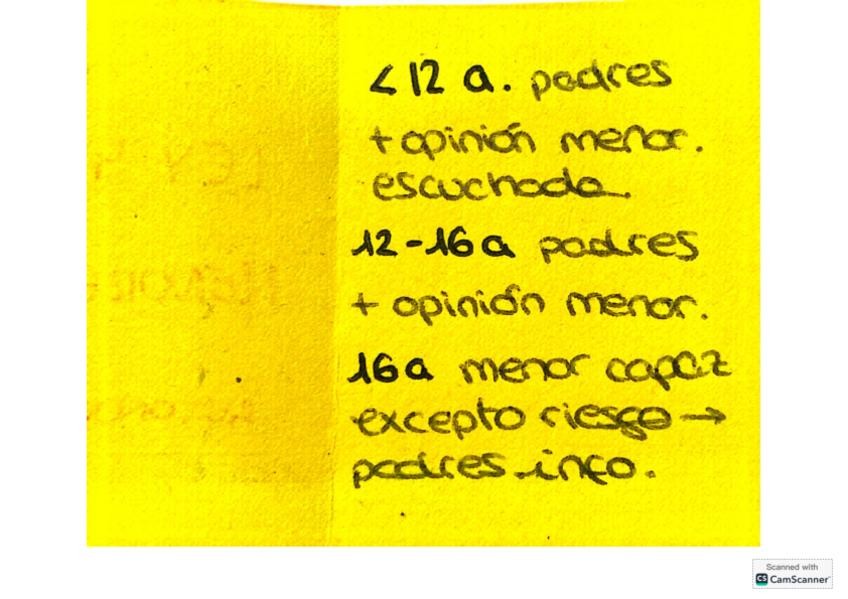 <12 a. padres
+ opinión menor.
escuchada.
12-16a padres
+ opinión menor.
16a menor capaz
excepto riesgo →
padres info.
Scanned with
CS CamScanner